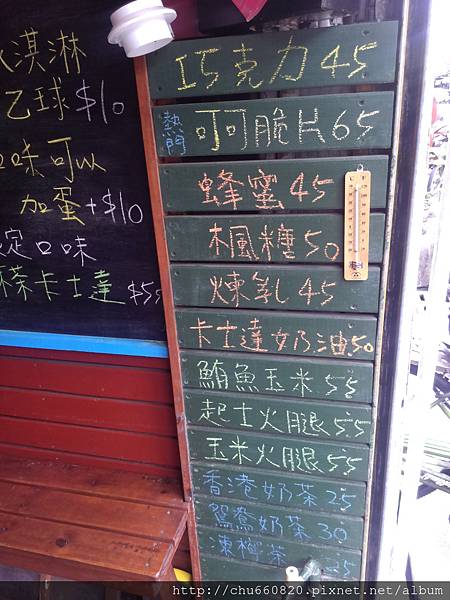 冰淇淋
乙球$10
口味可以
加蛋+$10
定口味
抹茶卡士達$55
巧克力 45
熱門 可可脆片 65
蜂蜜 45
楓糖 50
煉乳 45
卡士達奶油 50
鮪魚玉米 55
起士火腿 55
玉米火腿 55
香港奶茶 25
鴛鴦奶茶 30
凍檸茶 25
http://chu660820.pixnet.net/album